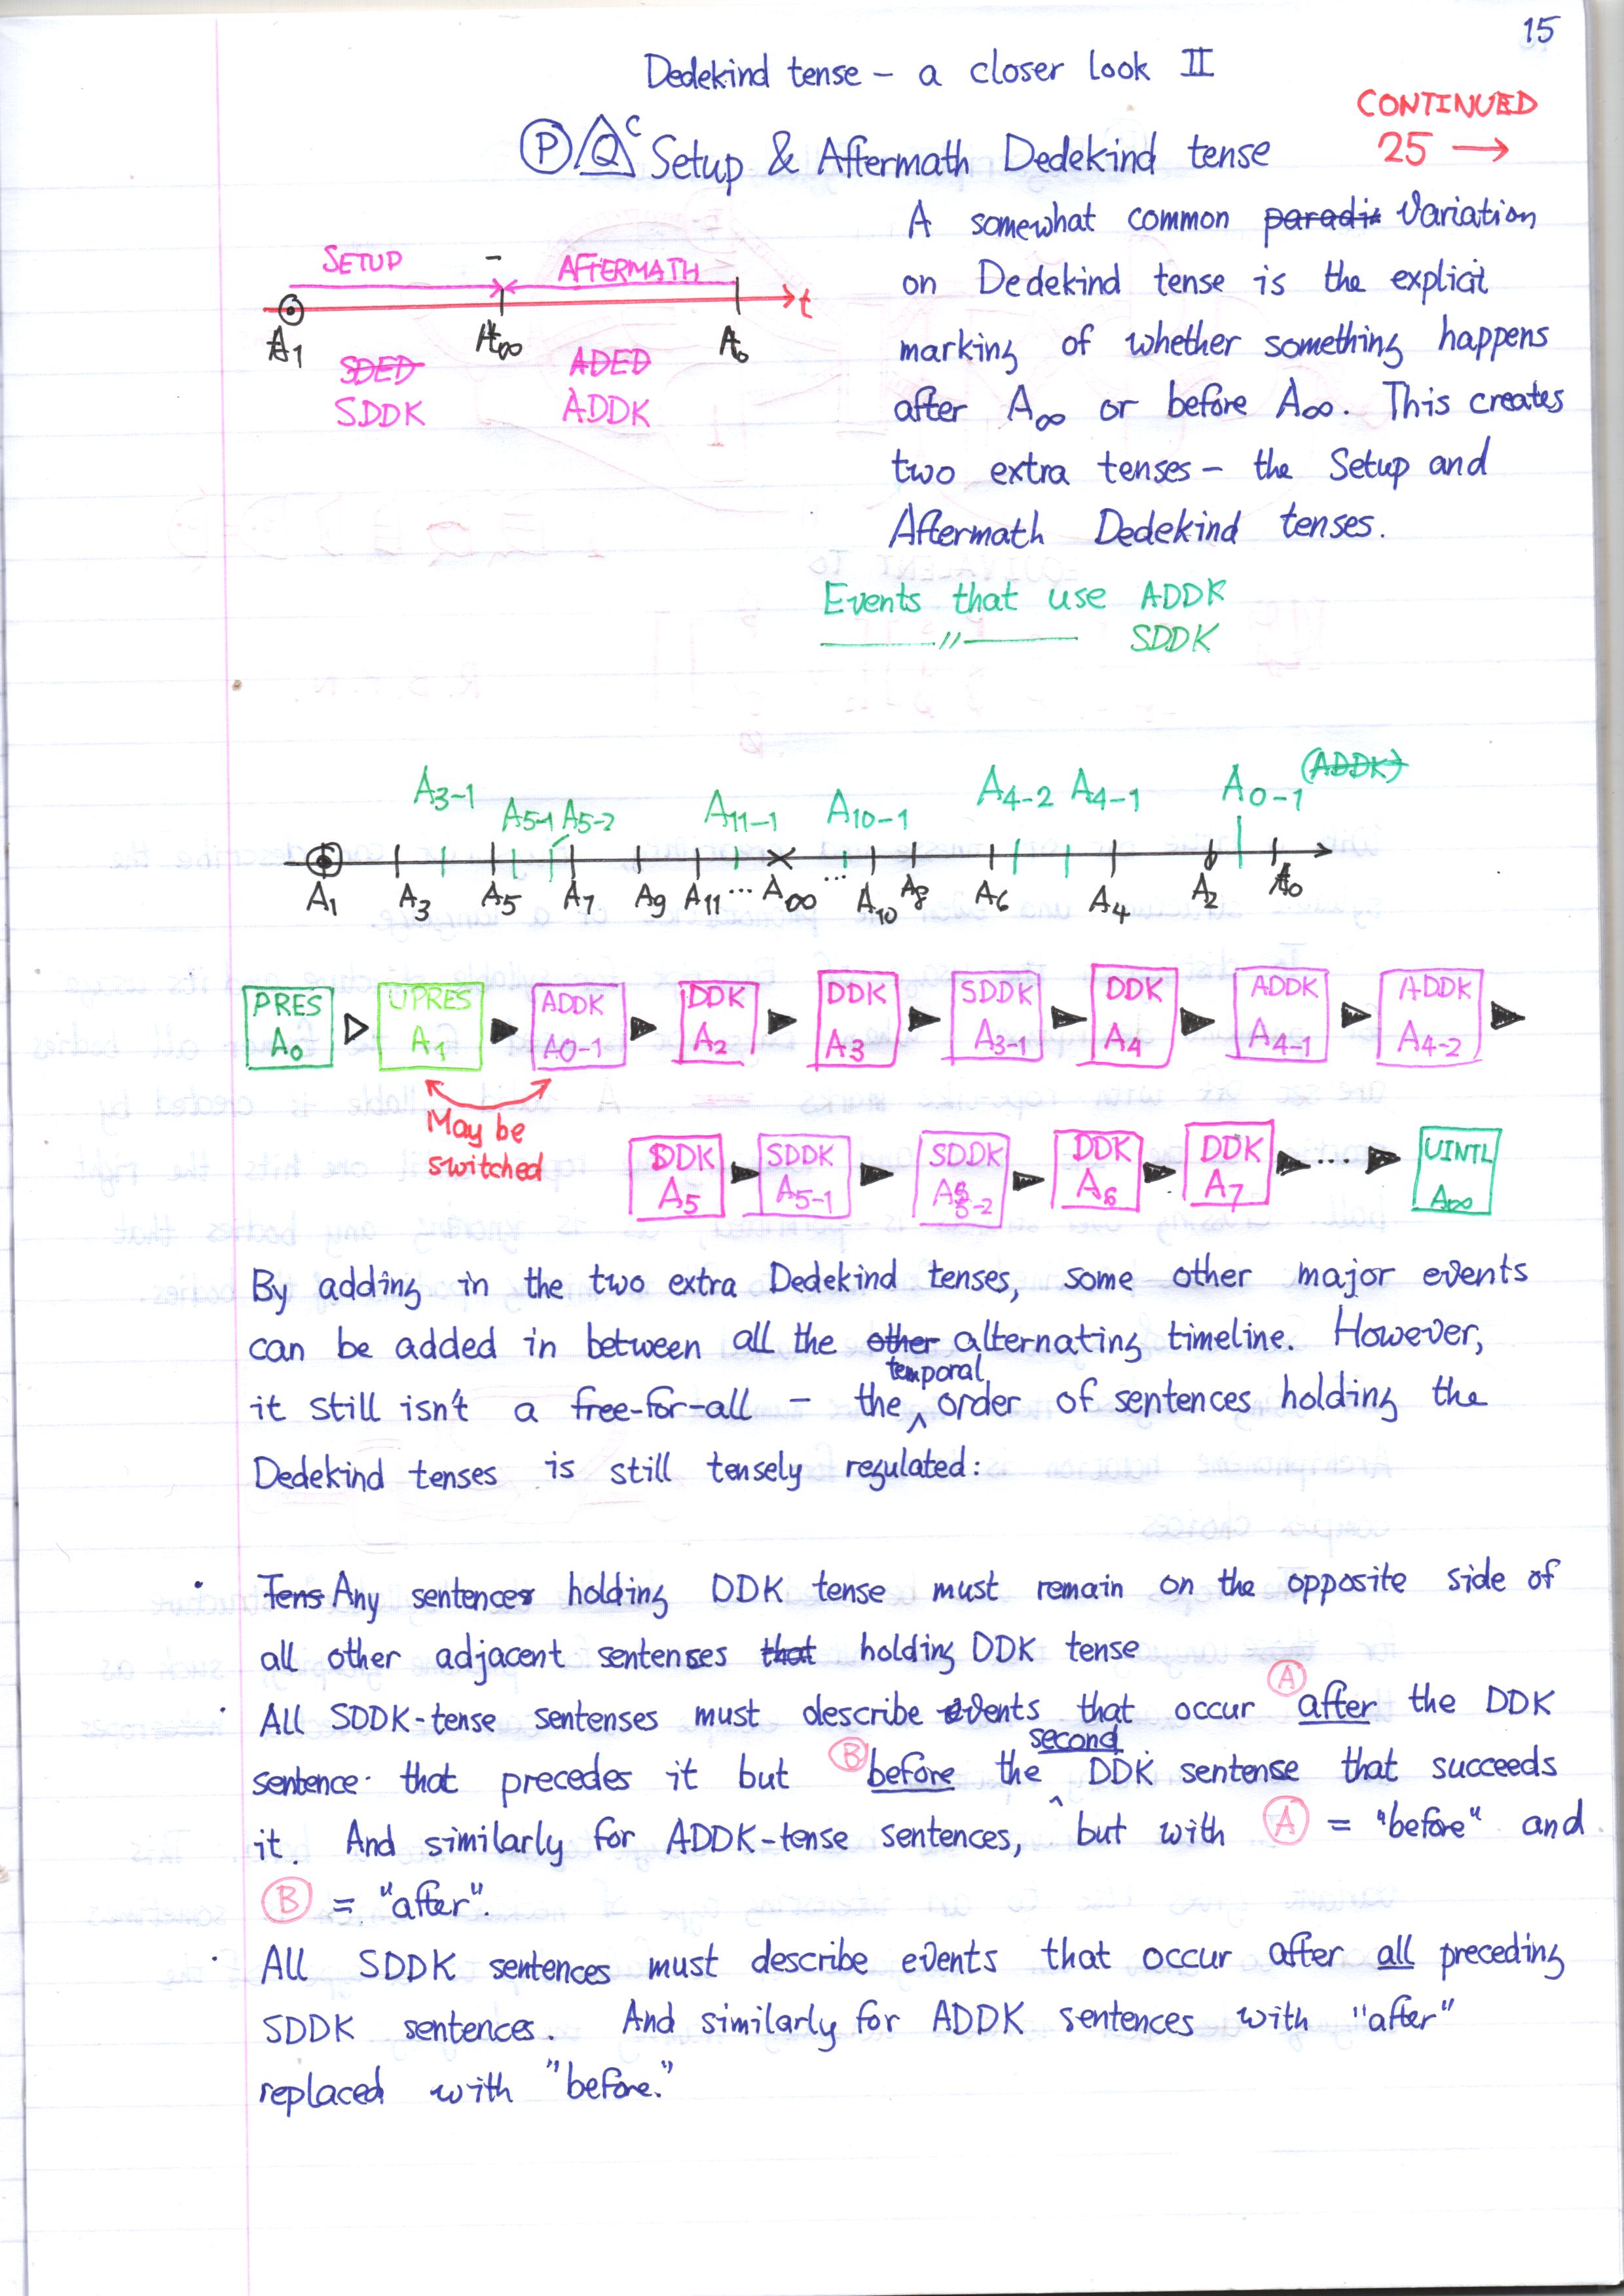 15
Dedekind tense – a closer look II
CONTINUED
25 →
P/Q^C Setup & Aftermath Dedekind tense
A somewhat common paradi Variation
on Dedekind tense is the explicit
marking of whether something happens
after A∞ or before A∞. This creates
two extra tenses – the Setup and
Aftermath Dedekind tenses.
SETUP – AFTERMATH
t
A1 A∞ A0
SDED ADED
SDDK ADDK
Events that use ADDK
——〃—— SDDK
A3-1 A5-1 A5-2 A11-1 A10-1 A4-2 A4-1 A0-1 (ADDK)
A1 A3 A5 A7 A9 A11 ... A∞ ... A10 A8 A6 A4 A2 A0
PRES A0 ▷ UPRES A1 ▶ ADDK A0-1 ▶ DDK A2 ▶ DDK A3 ▶ SDDK A3-1 ▶ DDK A4 ▶ ADDK A4-1 ▶ ADDK A4-2 ▶
May be
switched
DDK A5 ▶ SDDK A5-1 ▶ SDDK A5-2 ▶ DDK A6 ▶ DDK A7 ▶ ... ▶ UINTL A∞
By adding in the two extra Dedekind tenses, some other major events
can be added in between all the other alternating timeline. However,
it still isn't a free-for-all – the temporal order of sentences holding the
Dedekind tenses is still tensely regulated:
· Tens Any sentences holding DDK tense must remain on the opposite side of
all other adjacent sentenses that holding DDK tense
· All SDDK-tense sentenses must describe events that occur Ⓐ after the DDK
sentence that precedes it but Ⓑ before the second DDK sentense that succeeds
it. And similarly for ADDK-tense sentences, but with Ⓐ = "before" and
Ⓑ = "after".
· All SDDK sentences must describe events that occur after all preceding
SDDK sentences. And similarly for ADDK sentences with "after"
replaced with "before."